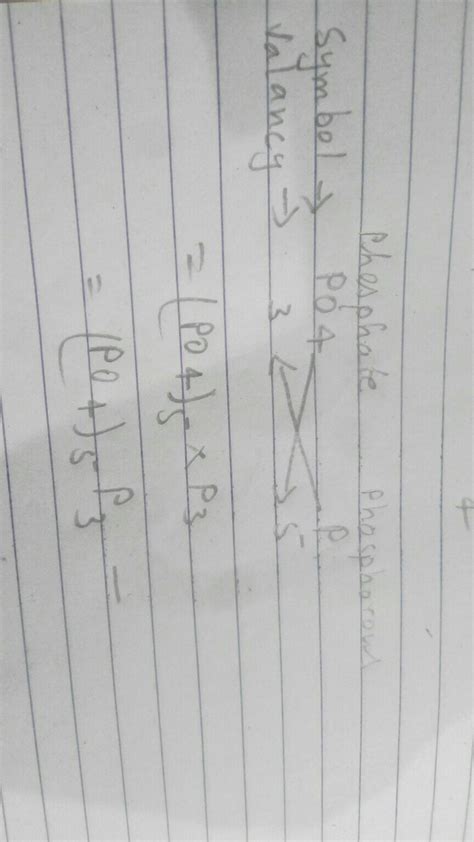 4
Phosphate Phosphorous
Symbol → PO4 P
Valancy → 3 5
= (PO4)5 × P3
= (PO4)5 P3 —